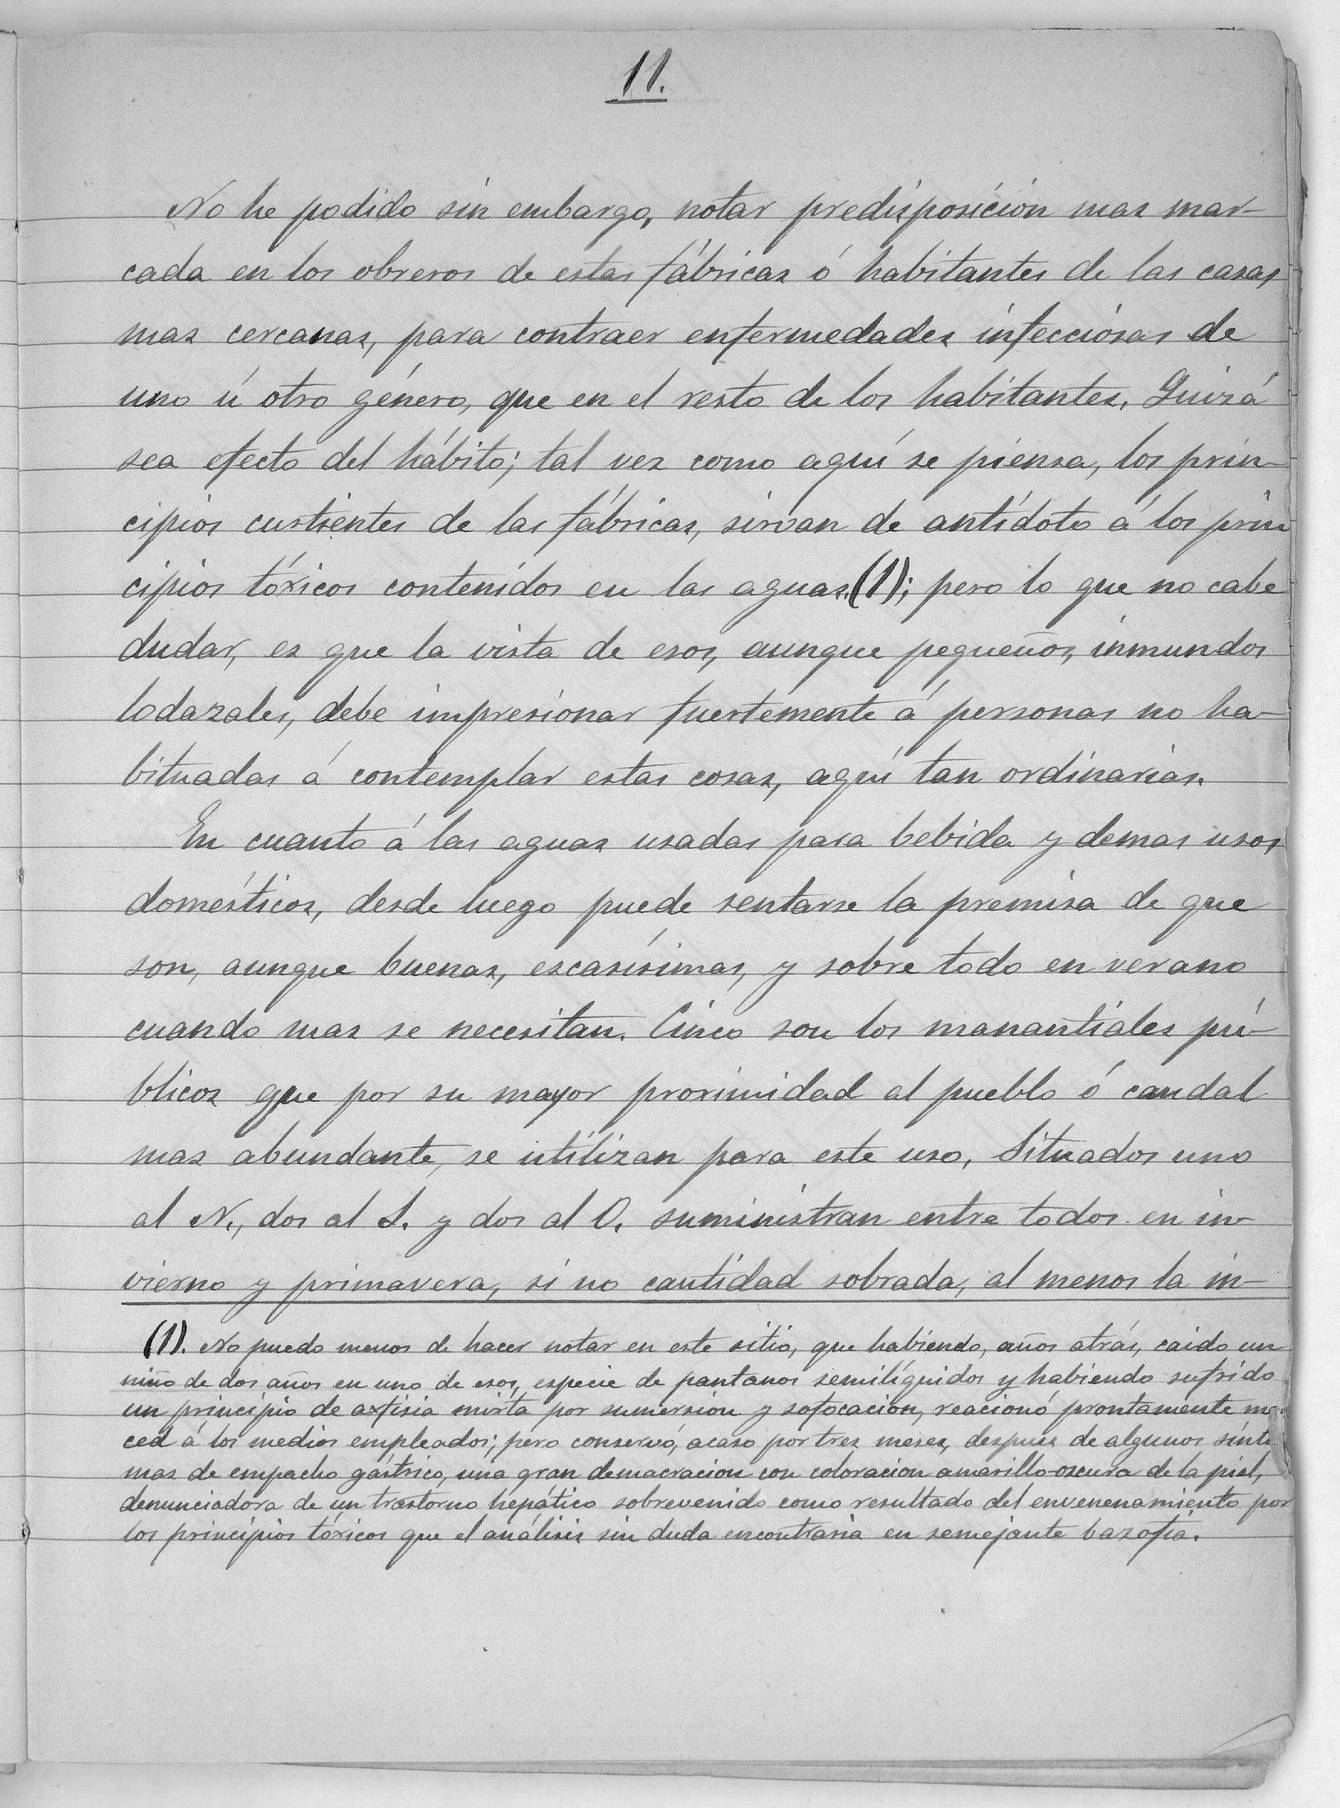 11.
No he podido sin embargo, notar predisposición mas mar-
cada en los obreros de estas fábricas ó habitantes de las casas
mas cercanas, para contraer enfermedades infecciosas de
uno ú otro género, que en el resto de los habitantes. Quizá
sea efecto del hábito; tal vez como aquí se piensa, los prin-
cipios curtientes de las fábricas, sirvan de antídoto á los prin
cipios tóxicos contenidos en las aguas.(1); pero lo que no cabe
dudar, es que la vista de esos, aunque pequeños, inmundos
lodazales, debe impresionar fuertemente á personas no ha-
bituadas á contemplar estas cosas, aquí tan ordinarias.
En cuanto á las aguas usadas para bebida y demas usos
domésticos, desde luego puede sentarse la premisa de que
son, aunque buenas, escasísimas, y sobre todo en verano
cuando mas se necesitan. Cinco son los manantiales pú-
blicos que por su mayor proximidad al pueblo ó caudal
mas abundante, se utilizan para este uso. Situados uno
al N., dos al S. y dos al O. suministran entre todos en in-
vierno y primavera, si no cantidad sobrada, al menos la in-
(1). No puedo menos de hacer notar en este sitio, que habiendo, años atrás, caido un
niño de dos años en uno de esos, especie de pantanos semilíquidos y habiendo sufrido
un principio de axfisia mixta por sumersion y sofocación, reacionó prontamente mer
ced á los medios empleados; pero conservó, acaso por tres meses, despues de algunos sínto
mas de empacho gástrico, una gran demacracion con coloracion amarillo-oscura de la piel,
denunciadora de un trastorno hepático sobrevenido como resultado del envenenamiento por
los principios tóxicos que el análisis sin duda encontraria en semejante bazofia.